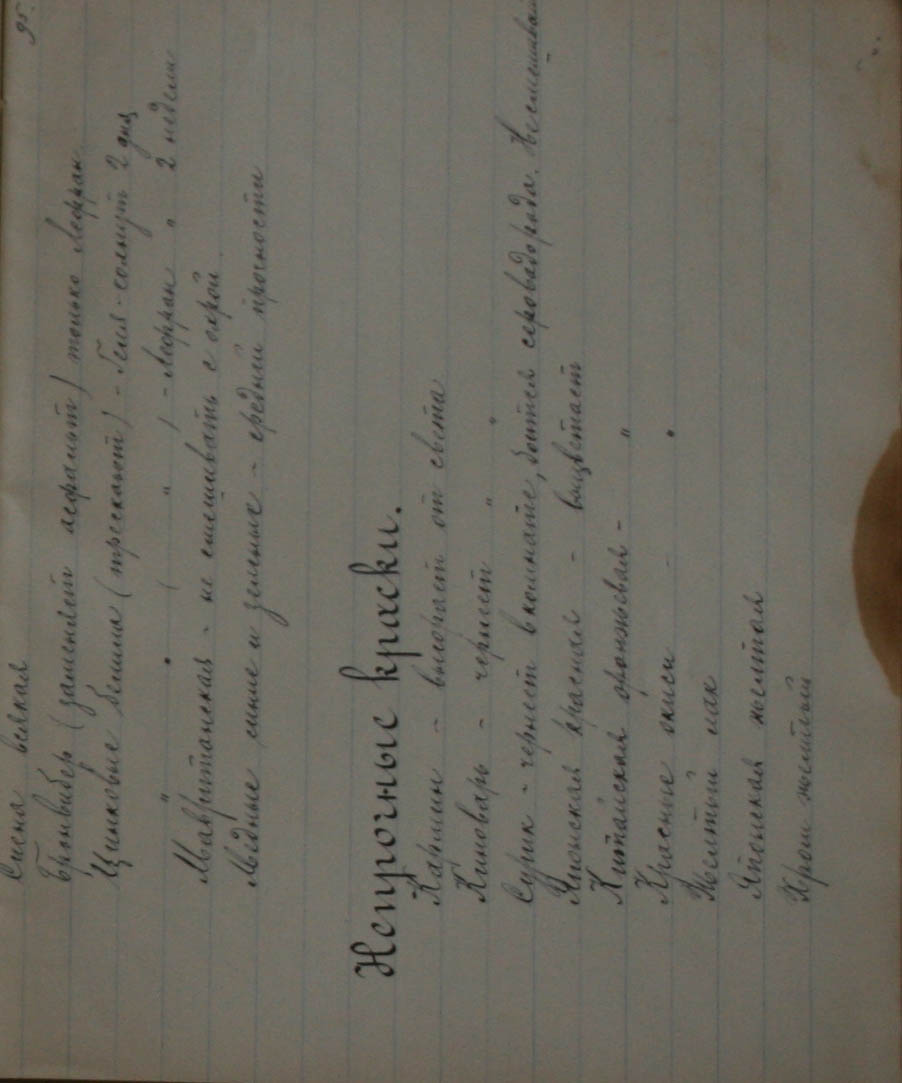 95.
Сиена всякая
Брювибер (заменяет асфальт) только Лефран
Цинковые белила (трескают) - Гений-сохнут 2 дня
" • ( " ) - Лефран " 2 недели
Мавританская - не смешивать с охрой
Медные синие и зеленые - средней прочности
Непрочные краски.
Кармин - выгорает от света
Киноварь - чернеет " "
Сурик - чернеет в комнате, боится сероводорода. Не смешивай
Японская красная - выцветает
Китайская оранжевая - "
Красные окиси - "
Желтый лак
Японская желтая
Хром желтый